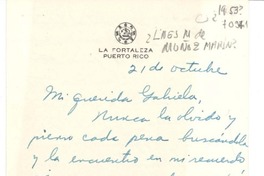 1953?
¿INÉS M. de
MUÑOZ MARÍN?
LA FORTALEZA
PUERTO RICO
21 de octubre
Mi querida Gabriela,
Nunca la olvido y
pienso cada pena buscándola
y la encuentro en mi recuerdo